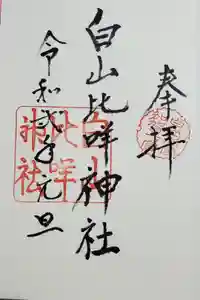 奉拝
白山比咩神社
令和弐年元旦
白山
比咩
神社